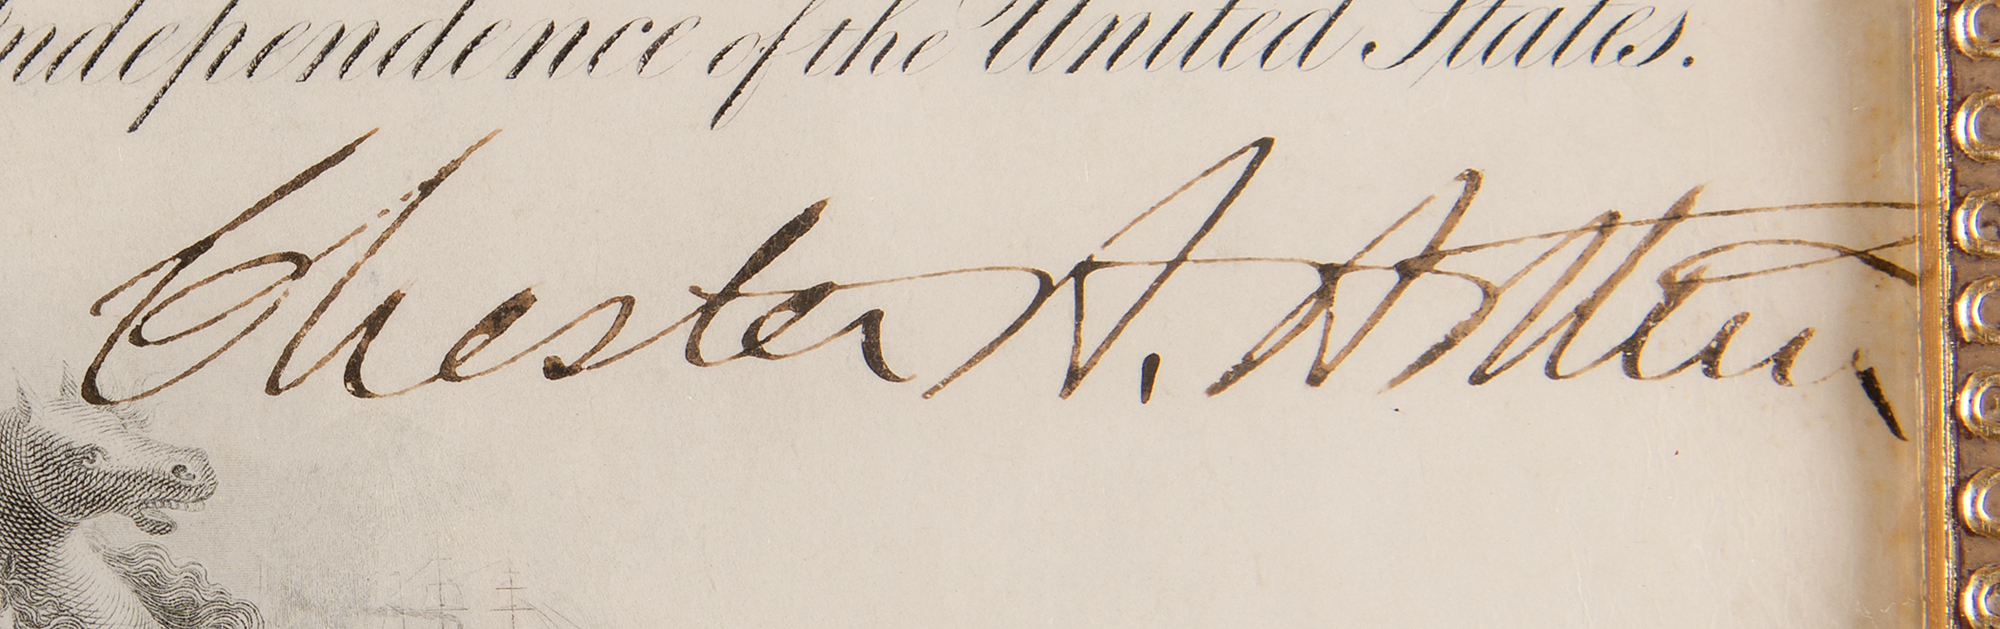 Independence of the United States.
Chester A. Arthur